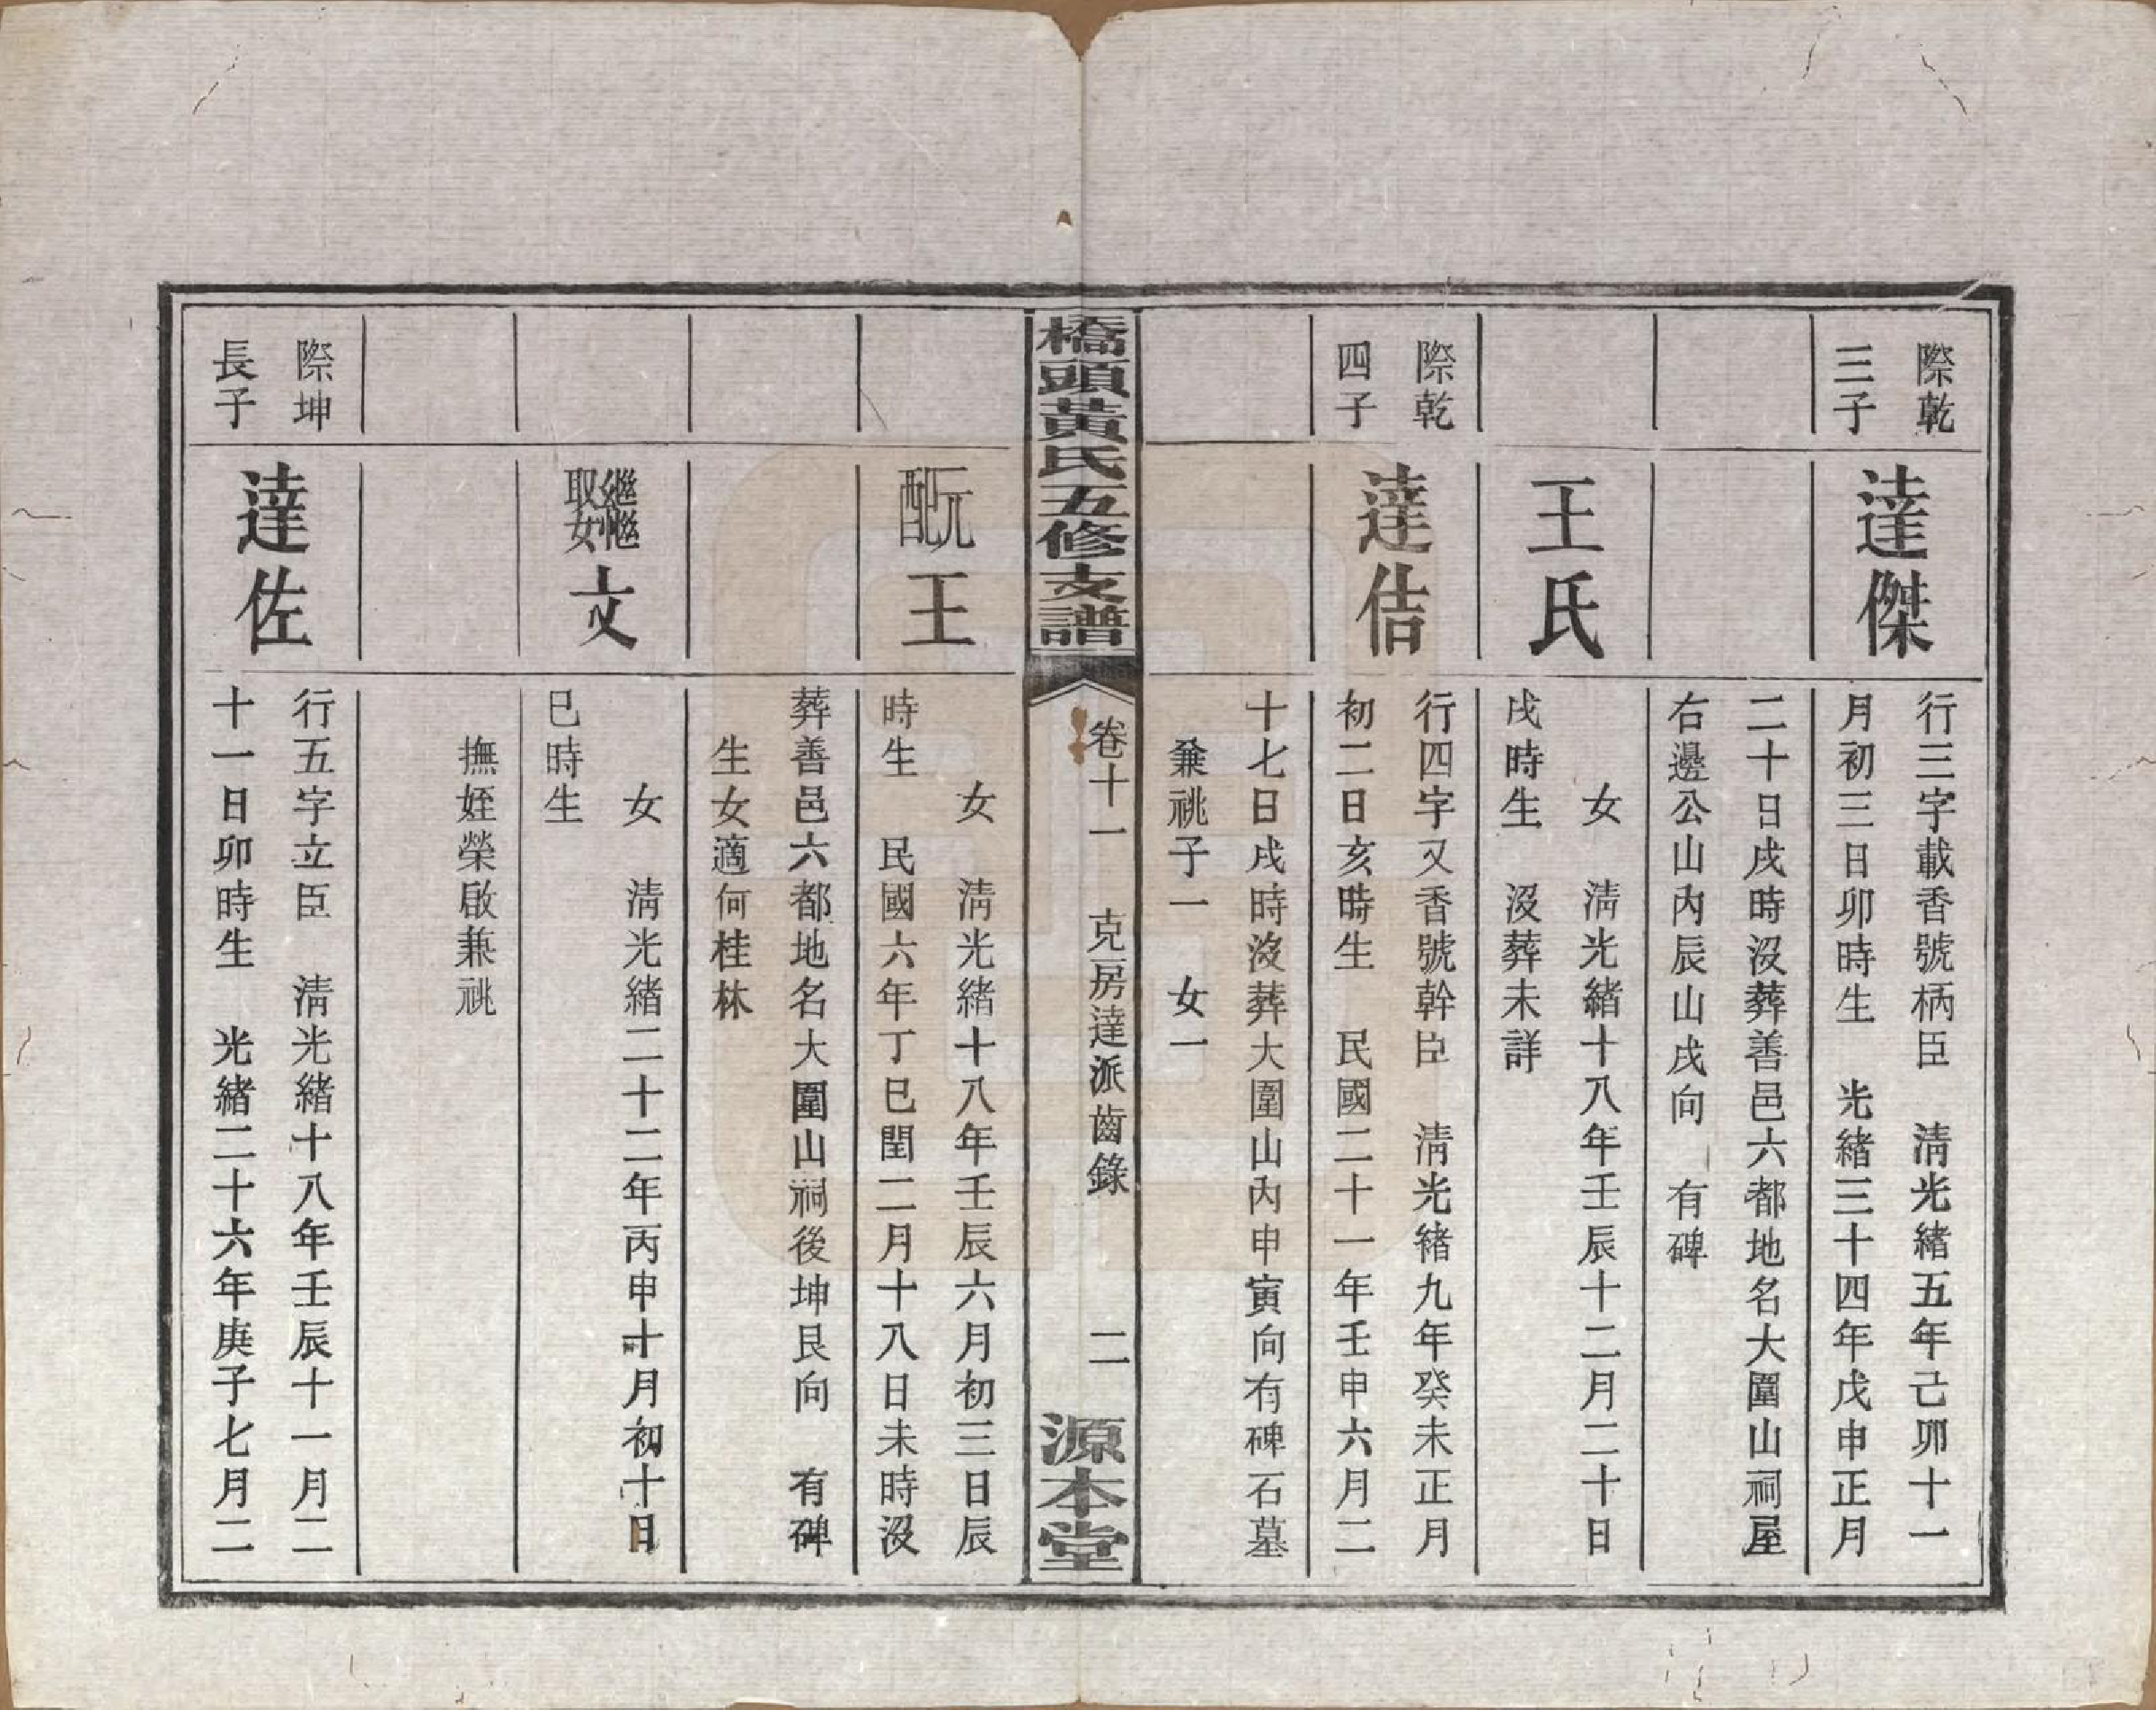 際乾
三子
達傑
行三字載香號柄臣　清光緒五年己卯十一
月初三日卯時生　光緒三十四年戊申正月
二十日戌時沒葬善邑六都地名大圍山祠屋
右邊公山內辰山戌向　有碑
王氏
女　清光緒十八年壬辰十二月二十日
戌時生　沒葬未詳
際乾
四子
達佶
行四字又香號幹臣　清光緒九年癸未正月
初二日亥時生　民國二十一年壬申六月二
十七日戌時沒葬大圍山內申寅向有碑石墓
兼祧子一　女一
橋頭黃氏五修支譜
卷十一　克房達派齒錄　二
源本堂
元配
王
女　清光緒十八年壬辰六月初三日辰
時生　民國六年丁巳閏二月十八日未時沒
葬善邑六都地名大圍山祠後坤艮向　有碑
生女適何桂林
繼娶
文
女　清光緒二十二年丙申十月初十日
巳時生
撫姪榮啟兼祧
際坤
長子
達佐
行五字立臣　清光緒十八年壬辰十一月二
十一日卯時生　光緒二十六年庚子七月二